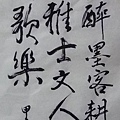 醉墨客耕
雅士文人
歌樂